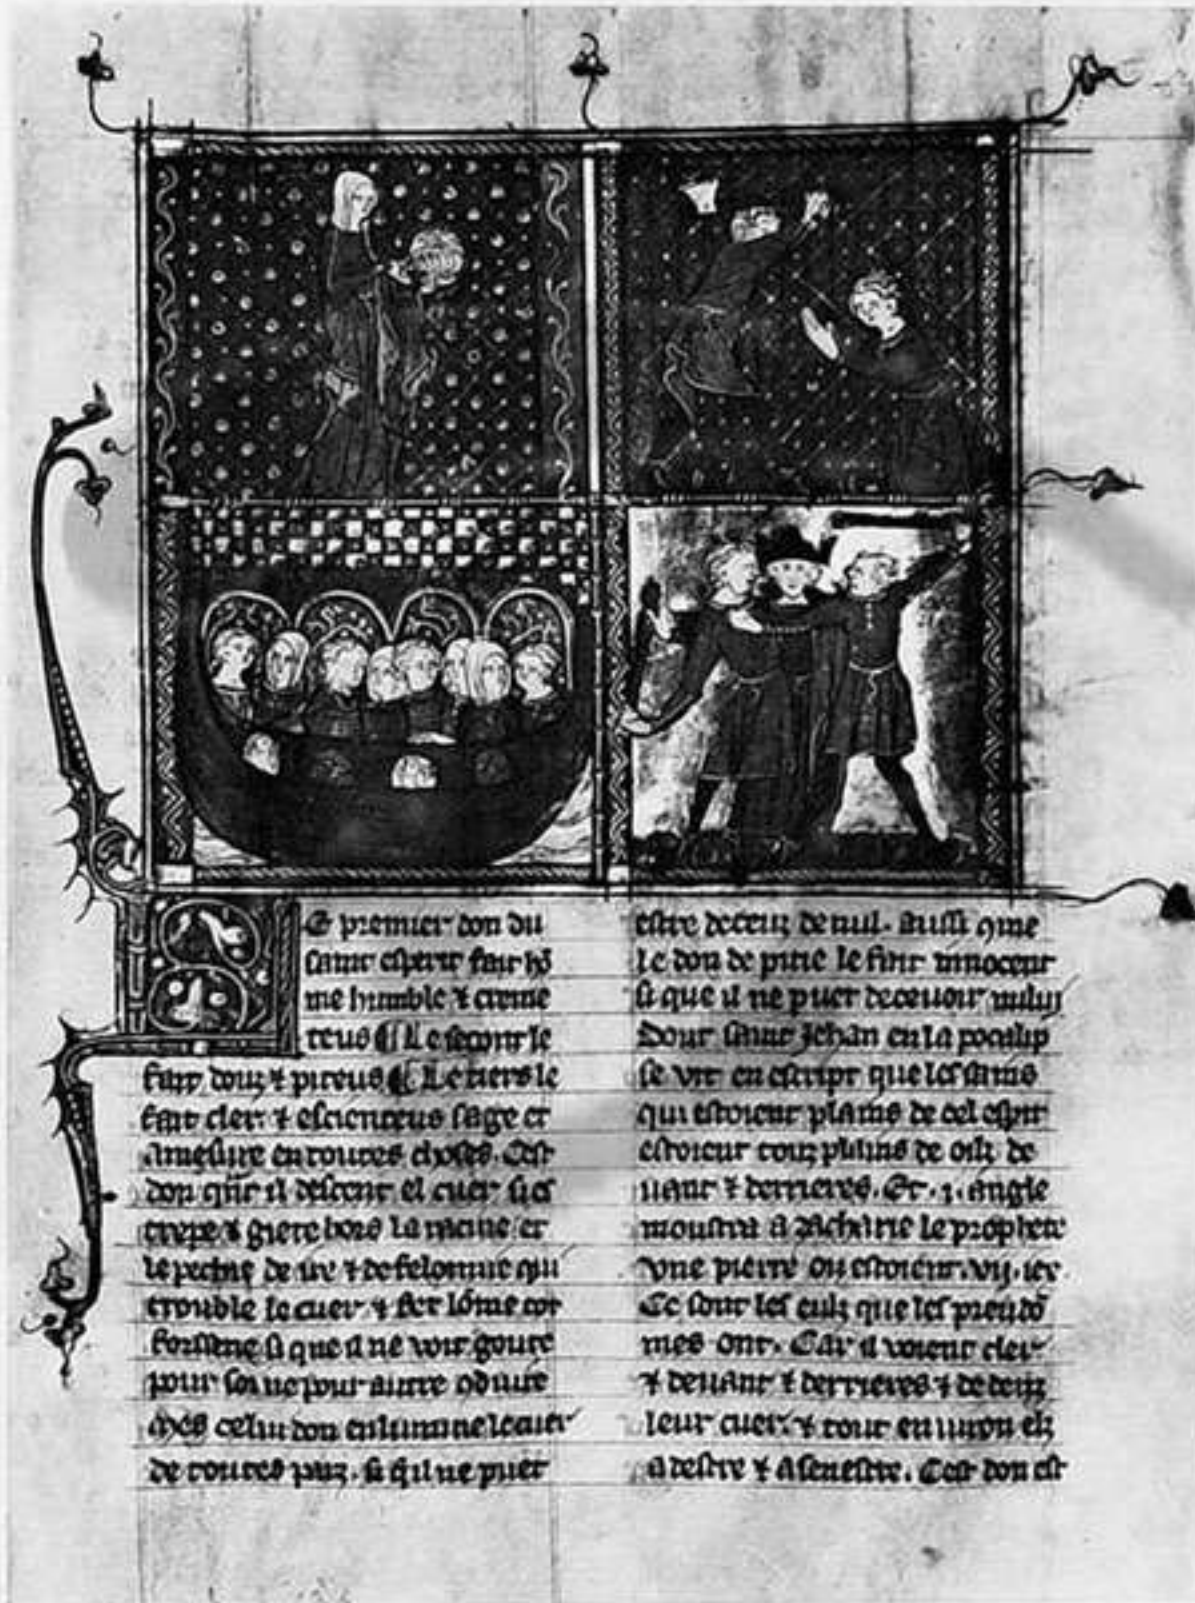 E premier don du
saint esperit fait hō
me humble & creme
teus ¶ Le secont le
fait douz & piteus ¶ Le tiers le
fait cler & escienteus sage et
amesure en toutes choses. Cest
don qn̄t il descent el cuer si es
trepe & giete hors la racine et
le pechie de ire & de felonnie qui
trouble le cuer & fet lōme tot
forssene si que il ne voit goute
pour soi ne pour autre conduire
Mes celui don enlumine le cuer
de toutes parz. si q̄il ne puet
estre deceuz de nul. Aussi 9me
le don de pitie le fait innocent
si que il ne puet decevoir nului
Dont saint Jehan en la pocalip
se vit en escript que les sains
qui estoient plains de cel esprit
estoient touz plains de oilz de
uant & derrieres. Et .j. angle
moustra a zacharie le prophete
vne pierre ou estoient .vij. iex
Ce sont les eulz que les preudō
mes ont. Car il voient cler
& deuant & derrieres & dedenz
leur cuer. & tout enuiron elz
a destre & a senestre. Cest don est